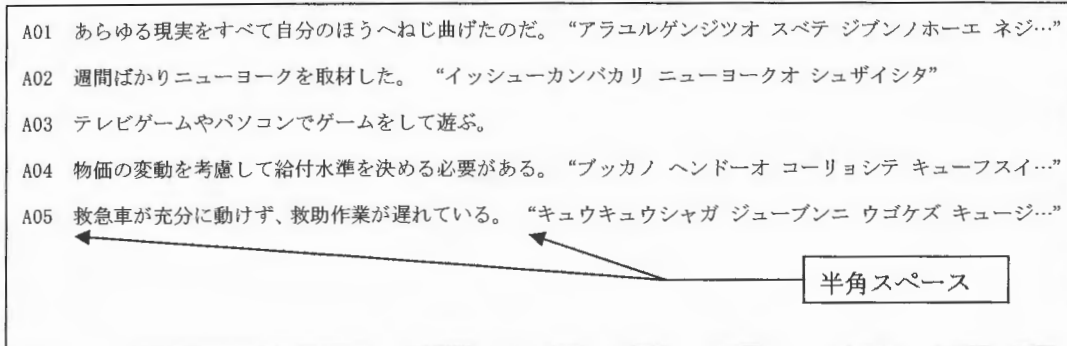 A01 あらゆる現実をすべて自分のほうへねじ曲げたのだ。 “アラユルゲンジツオ スベテ ジブンノホーエ ネジ…”
A02 週間ばかりニューヨークを取材した。 “イッシューカンバカリ ニューヨークオ シュザイシタ”
A03 テレビゲームやパソコンでゲームをして遊ぶ。
A04 物価の変動を考慮して給付水準を決める必要がある。 “ブッカノ ヘンドーオ コーリョシテ キューフスイ…”
A05 救急車が充分に動けず、救助作業が遅れている。 “キュウキュウシャガ ジューブンニ ウゴケズ キュージ…”
半角スペース